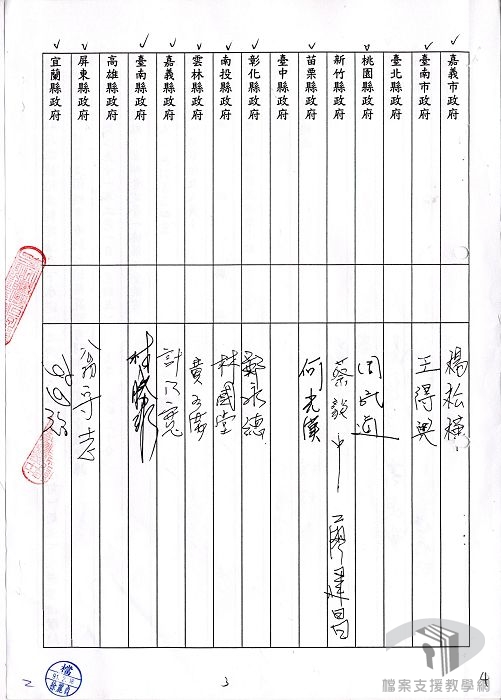 嘉義市政府 楊松
臺南市政府 王得興
臺北縣政府
桃園縣政府 周
新竹縣政府 蔡毅中 廖建昌
苗栗縣政府 何光漢
臺中縣政府
彰化縣政府 永德
南投縣政府 林國堂
雲林縣政府 黃
嘉義縣政府 許
臺南縣政府 林
高雄縣政府
屏東縣政府 翁守志
宜蘭縣政府
檔
檔案支援教學網
4
3
2